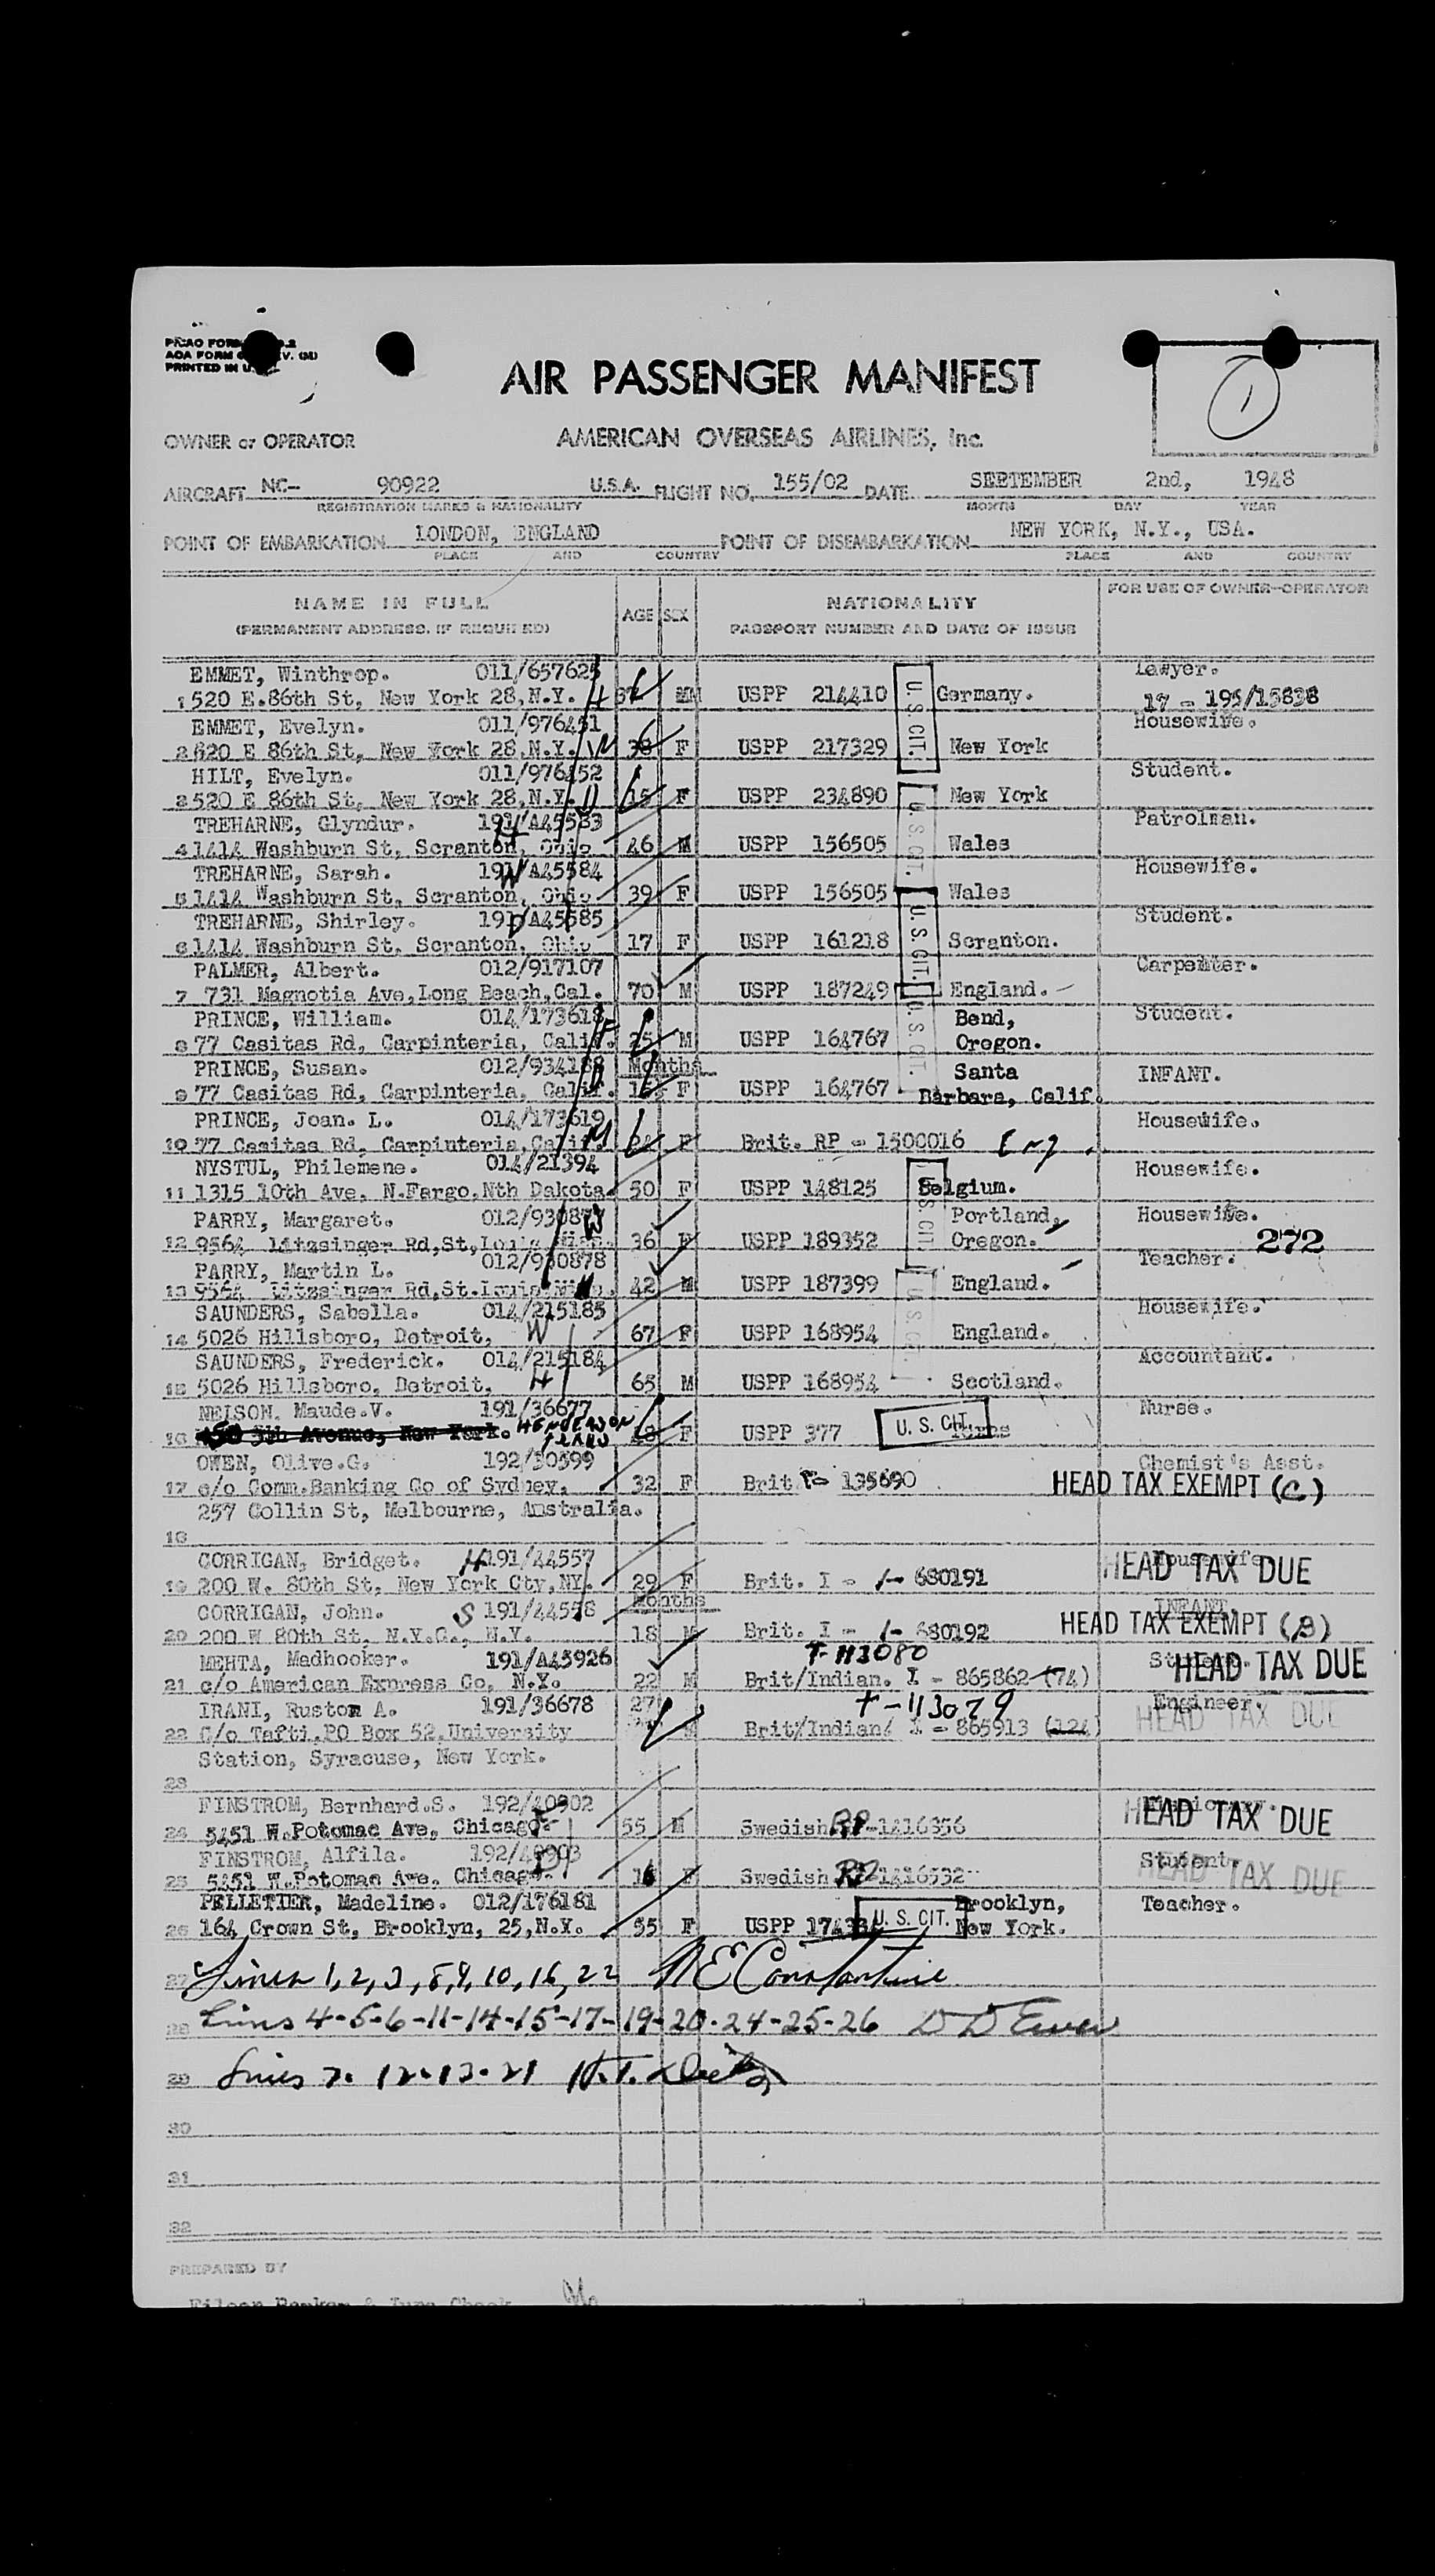 AOA FORM
PRINTED IN
AIR PASSENGER MANIFEST
1
OWNER or OPERATOR AMERICAN OVERSEAS AIRLINES, Inc.
AIRCRAFT NC- 90922 U.S.A. FLIGHT NO. 155/02 DATE SEPTEMBER 2nd, 1948
REGISTRATION MARKS & NATIONALITY MONTH DAY YEAR
POINT OF EMBARKATION LONDON, ENGLAND POINT OF DISEMBARKATION NEW YORK, N.Y., USA.
PLACE AND COUNTRY PLACE AND COUNTRY
NAME IN FULL AGE SEX NATIONALITY FOR USE OF OWNER-OPERATOR
(PERMANENT ADDRESS, IF REQUIRED) PASSPORT NUMBER AND DATE OF ISSUE
EMMET, Winthrop. 011/657625 Lawyer.
1 520 E.86th St, New York 28,N.Y. H USPP 214410 U.S.CIT. Germany. 17 - 195/15838
EMMET, Evelyn. 011/976451 Housewife.
2 620 E 86th St, New York 28,N.Y. W 38 F USPP 217329 New York
HILT, Evelyn. 011/976452 Student.
520 E 86th St, New York 28,N.Y. D 15 F USPP 234890 New York
TREHARNE, Glyndur. 191/A45583 Patrolman.
4 1414 Washburn St, Scranton, Ohio H 46 M USPP 156505 U.S.CIT. Wales
TREHARNE, Sarah. 191/A45584 Housewife.
5 1414 Washburn St, Scranton, Ohio W 39 F USPP 156505 Wales
TREHARNE, Shirley. 191/A45585 Student.
6 1414 Washburn St, Scranton, Ohio D 17 F USPP 161218 U.S.CIT. Scranton.
PALMER, Albert. 012/917107 Carpenter.
7 731 Magnotia Ave,Long Beach,Cal. 70 M USPP 187249 England.
PRINCE, William. 014/173618 Bend, Student.
8 77 Casitas Rd, Carpinteria, Calif. F 25 M USPP 164767 U.S.CIT Oregon.
PRINCE, Susan. 012/934188 Months Santa INFANT.
9 77 Casitas Rd, Carpinteria, Calif. F USPP 164767 Barbara, Calif.
PRINCE, Joan. L. 014/173619 Housewife.
10 77 Casitas Rd, Carpinteria,Calif. M F Brit. RP - 1500016 Eng.
NYSTUL, Philemene. 014/21394 Housewife.
11 1315 10th Ave, N.Fargo,Nth Dakota. 50 F USPP 148125 Belgium.
PARRY, Margaret. 012/930877 W Portland, Housewife.
12 9564 Litzsinger Rd,St,Louis 36 F USPP 189352 Oregon. 272
PARRY, Martin L. 012/930878 Teacher.
13 9564 Litzsinger Rd,St.Louis 42 M USPP 187399 England.
SAUNDERS, Sabella. 014/215185 Housewife.
14 5026 Hillsboro, Detroit, W 67 F USPP 168954 U.S.CIT. England.
SAUNDERS, Frederick. 014/215184 Accountant.
15 5026 Hillsboro, Detroit, H 65 M USPP 168954 Scotland.
NELSON, Maude.V. 191/36677 Nurse.
16 5th Avenue, New York. HENDERSON TEXAS 48 F USPP 377 U. S. CIT.
OWEN, Olive.G. 192/30599 Chemist's Asst.
17 c/o Comm.Banking Co of Sydney. 32 F Brit 135690 HEAD TAX EXEMPT (C)
257 Collin St, Melbourne, Australia.
18
CORRIGAN, Bridget. H 191/44557 Housewife
19 200 W. 80th St, New York Cty,NY. 29 F Brit. I - 1- 680191 HEAD TAX DUE
CORRIGAN, John. S 191/44558 Months INFANT.
20 200 W 80th St, N.Y.C., N.Y. 18 M Brit. I - 1- 680192 HEAD TAX EXEMPT (B)
MEHTA, Madhooker. 191/A45926 T-113080 HEAD TAX DUE
21 c/o American Express Co, N.Y. 22 M Brit/Indian. I - 865862 (74)
IRANI, Rustom A. 191/36678 27 T-113079 Engineer.
22 C/o Tafti.PO Box 52.University M Brit/Indian/ I - 865913 (124) HEAD TAX DUE
Station, Syracuse, New York.
23
FINSTROM, Bernhard.S. 192/40902
24 5451 W.Potomac Ave, Chicago. F 55 M Swedish RP-1416356 HEAD TAX DUE
FINSTROM, Alfila. 192/40903 Student.
25 5451 W.Potomac Ave. Chicago. D 16 F Swedish RP 1416532 HEAD TAX DUE
PELLETIER, Madeline. 012/176181 Brooklyn, Teacher.
26 164 Crown St, Brooklyn, 25,N.Y. 55 F USPP U. S. CIT. New York.
27 Lines 1, 2, 3, 8, 9, 10, 16, 22 N E Constantine
28 Lines 4-5-6-11-14-15-17-19-20-24-25-26
29 Lines 7. 12.13.21
30
31
32
PREPARED BY